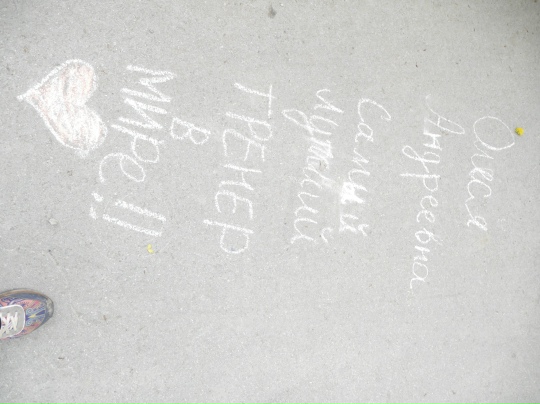 Олеся
Андреевна
Самый
лучший
ТРЕНЕР
В
МИРЕ!!